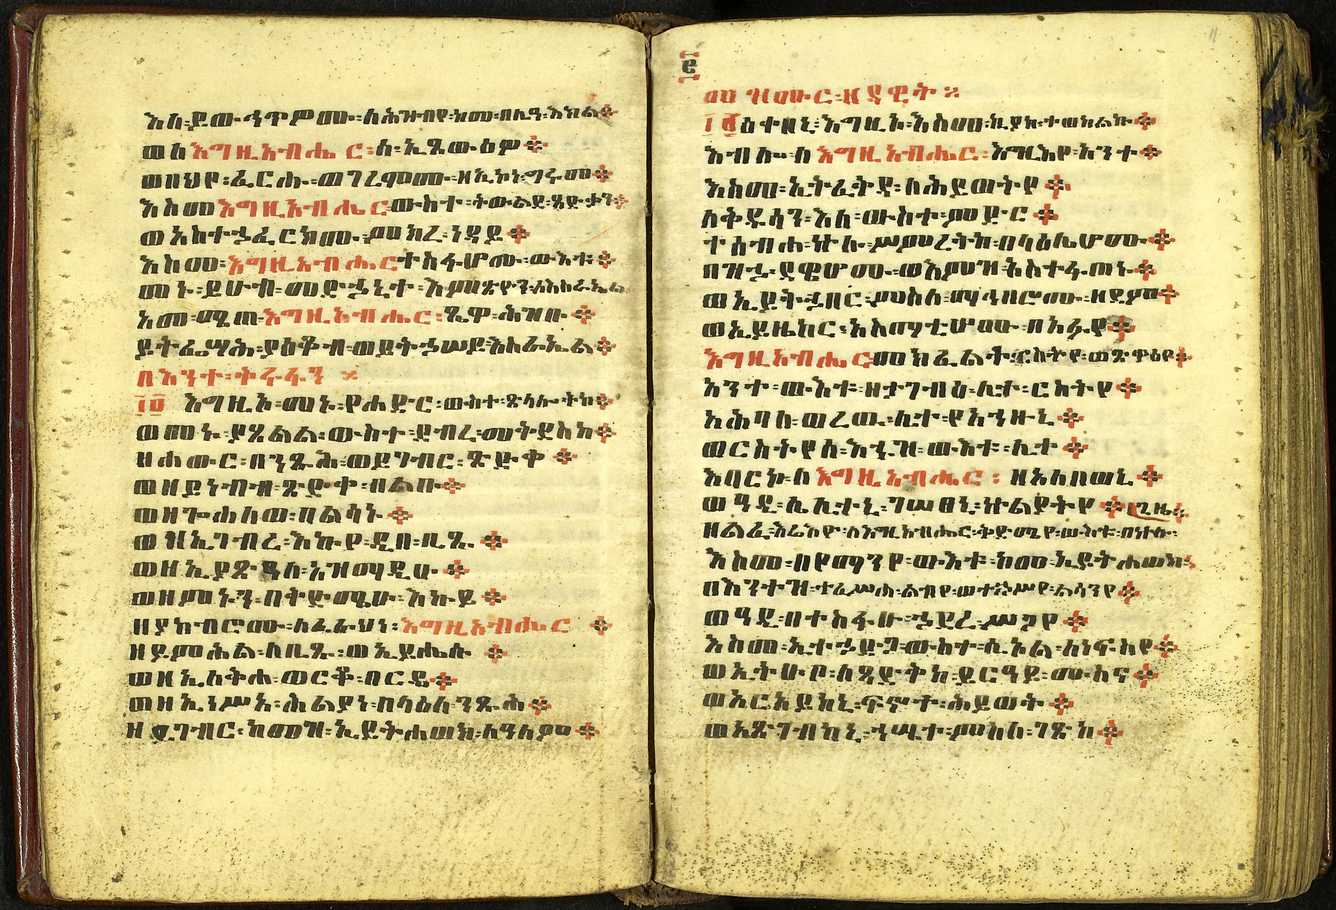 እለ፡ይውኅጥዎሙ፡ለሕዝብየ፡ከመ፡በሊዓ፡እክል፨
ወለእግዚአብሔር፡ሰ፡ኢጼውዕዎ፨
ወበህየ፡ፈርሑ፡ወገረሞሙ፡ዘኢኮነ፡ግሩመ፨
እስመ፡እግዚአብሔር፡ውስተ፡ትውልደ፡ጻድቃን፨
ወአስተኃፈርክሙ፡ምክረ፡ነዳይ፨
እስመ፡እግዚአብሔር፡ተስፋሆሙ፡ውእቱ፨
መኑ፡ይሁብ፡መድኃኒተ፡እምጽዮን፡ለእስራኤል
አመ፡ሜጠ፡እግዚአብሔር፡ፄዋ፡ሕዝቡ፨
ይትፌሣሕ፡ያዕቆብ፡ወይትኃሠይ፡እስራኤል፨
በእንተ፡ትሩፋን፨
፲፬ እግዚኦ፡መኑ፡የሐድር፡ውስተ፡ጽላሎትከ፨
ወመኑ፡ያጸልል፡ውስተ፡ደብረ፡መቅደስከ፨
ዘሐውር፡በንጹሕ፡ወይገብር፡ጽድቀ፨
ወዘይነብብ፡ጽድቀ፡በልቡ፨
ወዘኢጐሕለወ፡በልሳኑ፨
ወዘኢገብረ፡እኩየ፡ዲበ፡ቢጹ፨
ወዘኢያጽዓለ፡አዝማዲሁ፨
ወዘምኑን፡በቅድሜሁ፡እኩይ፨
ዘያከብሮሙ፡ለፈራህነ፡እግዚአብሔር፨
ዘይምሕል፡ለቢጹ፡ወኢይሔሱ፨
ወዘኢለቅሐ፡ወርቆ፡በርዴ፨
ወዘኢነሥአ፡ሕልያነ፡በላዕለ፡ንጹሐ፨
ዘይገብር፡ከመዝ፡ኢይትሐወክ፡ለዓለም፨
፭
መዝሙር፡ዘዳዊት፨
፲፭ ዕቀበኒ፡እግዚኦ፡እስመ፡ኪያከ፡ተወከልኩ፨
እብሎ፡ለእግዚአብሔር፡እግዚእየ፡አንተ፨
እስመ፡ኢትፈቅዳ፡ለሕይወትየ፨
ለቅዱሳን፡እለ፡ውስተ፡ምድር፨
ተሰብሐ፡ኵሉ፡ሥምረትከ፡በላዕሌሆሙ፨
በዝኃ፡ደዌሆሙ፡ወእምዝ፡አስተፋጠኑ፨
ወኢይትኃበር፡ምስለ፡ማኅበሮሙ፡ዘደም፨
ወኢይዜከር፡አስማቲሆሙ፡በአፉየ፨
እግዚአብሔር፡መክፈልተ፡ርስትየ፡ወጽዋዕየ፨
አንተ፡ውእቱ፡ዘታገብእ፡ሊተ፡ርስትየ፨
አሕባለ፡ወረው፡ሊተ፡የአኅዙኒ፨
ወርስትየሰ፡እኁዝ፡ውእቱ፡ሊተ፨
እባርኮ፡ለእግዚአብሔር፡ዘአለበወኒ፨
ወዓዲ፡ሌሊተኒ፡ገሠፀኒ፡ኵልያትየ፨
ዘልፈ፡እሬእዮ፡ለእግዚአብሔር፡ቅድሜየ፡ውእቱ፡በኵሉ፡ጊዜ፨
እስመ፡በየማንየ፡ውእቱ፡ከመ፡ኢይትሐወክ፨
በእንተዝ፡ተፈሥሐ፡ልብየ፡ወተኃሥየ፡ልሳንየ፨
ወዓዲ፡በተስፋሁ፡ኃደረ፡ሥጋየ፨
እስመ፡ኢተኃድጋ፡ውስተ፡ሲኦል፡ለነፍስየ፨
ወኢትሁቦ፡ለጻድቅከ፡ይርዓይ፡ሙስና፨
ወአርአይከኒ፡ፍኖተ፡ሕይወት፨
ወአጽገብከኒ፡ኀሤተ፡ምስለ፡ገጽከ፨